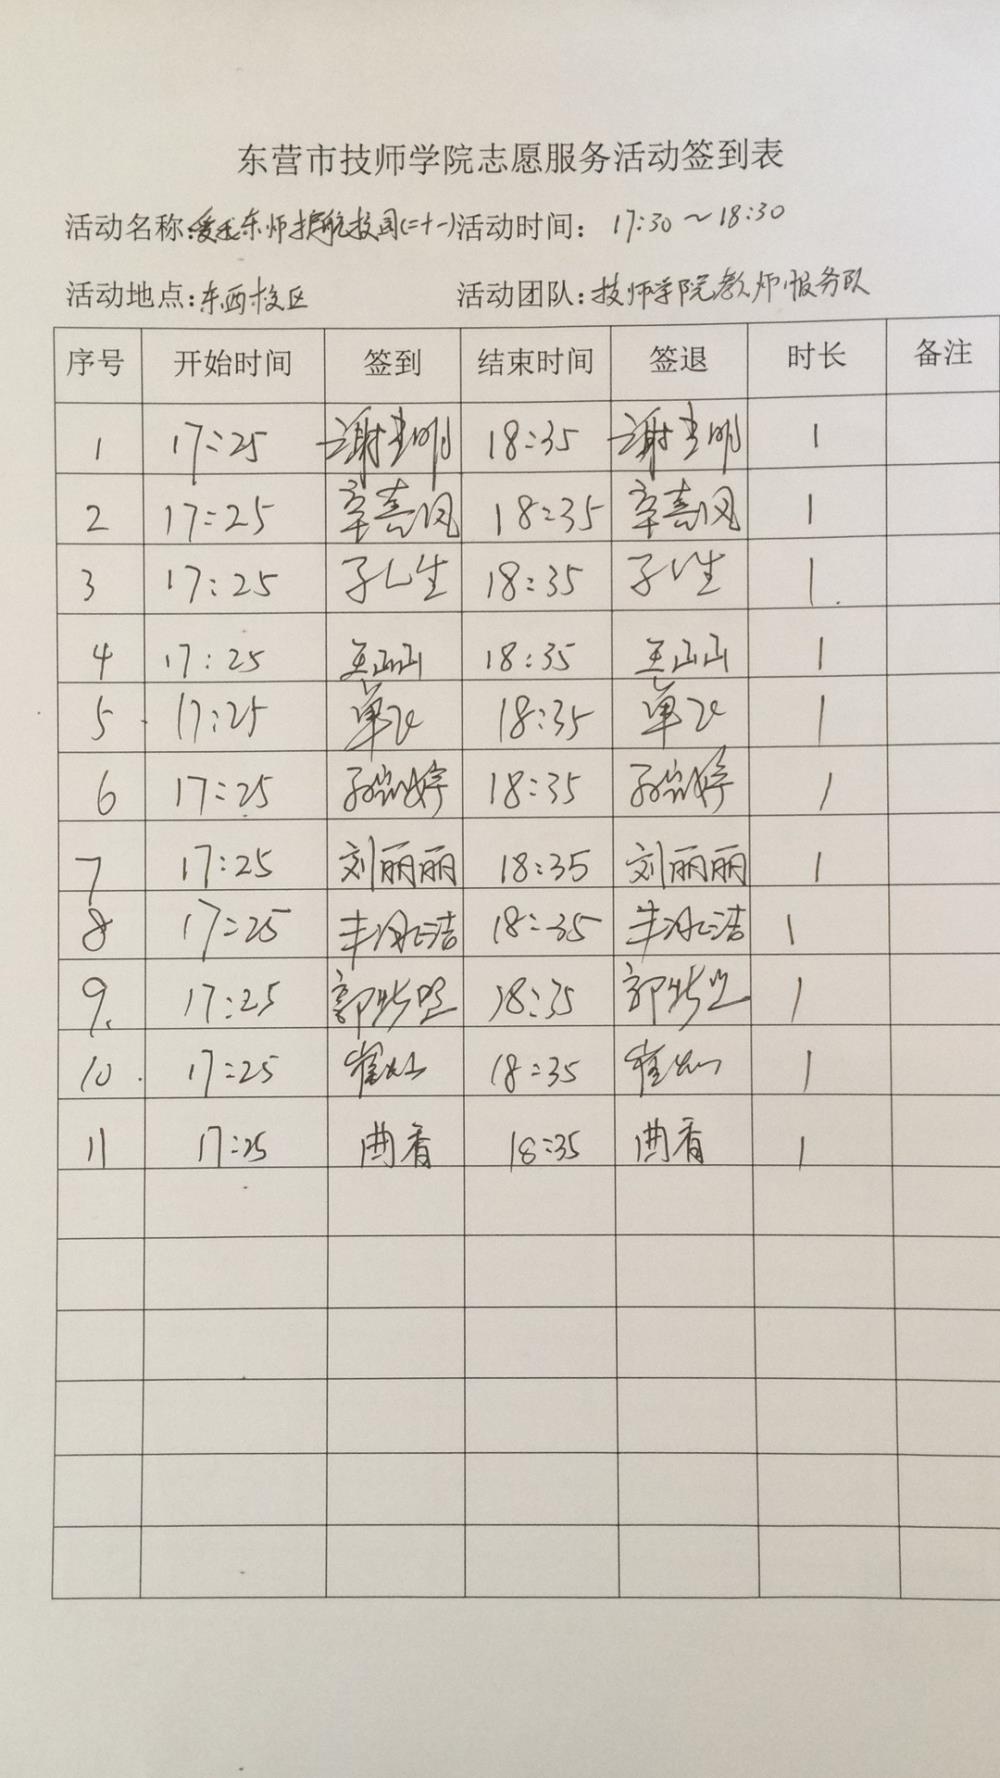 东营市技师学院志愿服务活动签到表
活动名称:爱我东师护航校园(二十一)活动时间: 17:30~18:30
活动地点:东西校区 活动团队:技师学院教师服务队
序号 开始时间 签到 结束时间 签退 时长 备注
1 17:25 谢 明 18:35 谢 明 1
2 17:25 辛喜凤 18:35 辛喜凤 1
3 17:25 18:35 1
4 17:25 王山山 18:35 王山山 1
5 17:25 单飞 18:35 单飞 1
6 17:25 孙 婷 18:35 孙 婷 1
7 17:25 刘丽丽 18:35 刘丽丽 1
8 17:25 洁 18:35 洁 1
9. 17:25 郭 18:35 郭 1
10 17:25 崔 18:35 崔 1
11 17:25 曲香 18:35 曲香 1